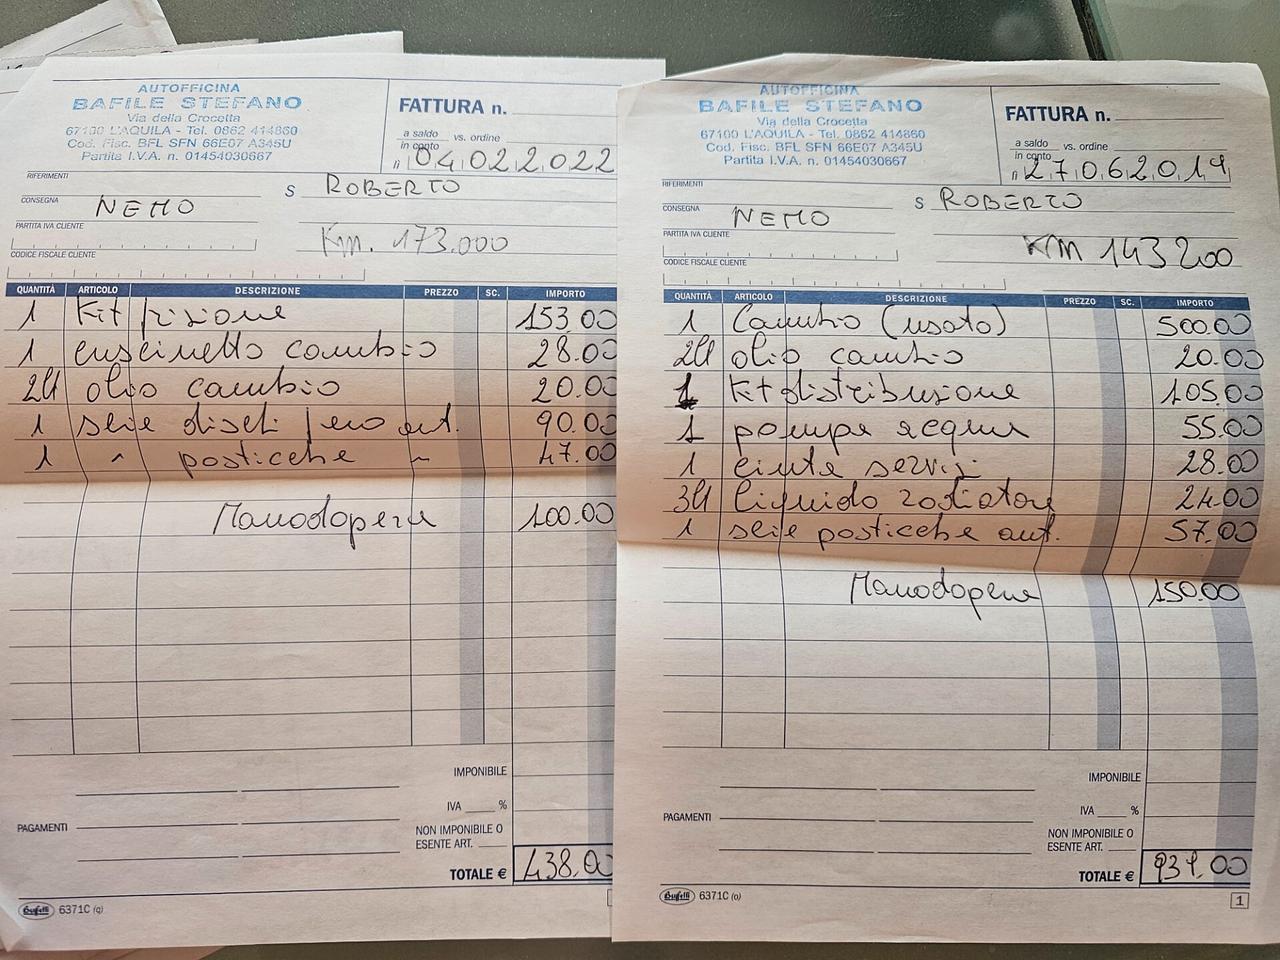 AUTOFFICINA
BAFILE STEFANO
Via della Crocetta
67100 L'AQUILA - Tel. 0862 414860
Cod. Fisc. BFL SFN 66E07 A345U
Partita I.V.A. n. 01454030667
FATTURA n.
a saldo vs. ordine
in conto
lì 04022022
RIFERIMENTI
S ROBERTO
CONSEGNA NEMO
PARTITA IVA CLIENTE
Km. 173.000
CODICE FISCALE CLIENTE
QUANTITÀ ARTICOLO DESCRIZIONE PREZZO SC. IMPORTO
1 Kit frizione 153.00
1 cuscinetto cambio 28.00
2lt olio cambio 20.00
1 serie dischi freno ant. 90.00
1 " posticche " 47.00
Manodopera 100.00
IMPONIBILE
IVA ____ %
PAGAMENTI
NON IMPONIBILE O
ESENTE ART. ____
TOTALE € 438.00
Buffetti 6371C (q)
AUTOFFICINA
BAFILE STEFANO
Via della Crocetta
67100 L'AQUILA - Tel. 0862 414860
Cod. Fisc. BFL SFN 66E07 A345U
Partita I.V.A. n. 01454030667
FATTURA n.
a saldo vs. ordine
in conto
lì 27062019
RIFERIMENTI
S ROBERTO
CONSEGNA NEMO
PARTITA IVA CLIENTE
KM 143200
CODICE FISCALE CLIENTE
QUANTITÀ ARTICOLO DESCRIZIONE PREZZO SC. IMPORTO
1 Cambio (usato) 500.00
2lt olio cambio 20.00
1 Kit distribuzione 105.00
1 pompa acqua 55.00
1 cinta servizi 28.00
3lt liquido radiatore 24.00
1 serie posticche ant. 57.00
Manodopera 150.00
IMPONIBILE
IVA ____ %
PAGAMENTI
NON IMPONIBILE O
ESENTE ART. ____
TOTALE € 939.00
Buffetti 6371C (o)
1